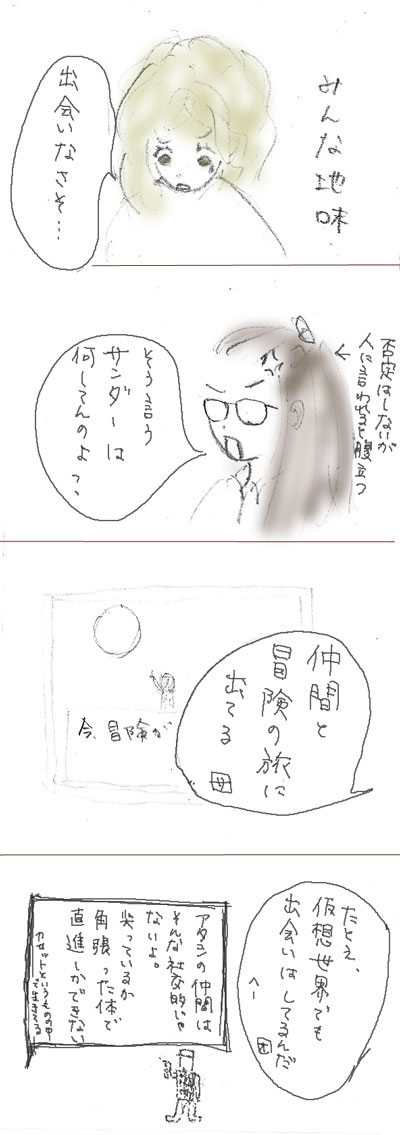 みんな地味
出会いなさそ…
否定はしないが
人に言われると腹立つ
そう言う
サンダーは
何してんのよっ、
仲間と
冒険の旅に
出てる
今、冒険が
たとえ、
仮想世界でも
出会いはしてるんだ
へー
アタシの仲間は
そんな社交的じゃ
ないよ。
尖っているが
角張った体で
直進しかできない
カセットというものの中
で生きてる